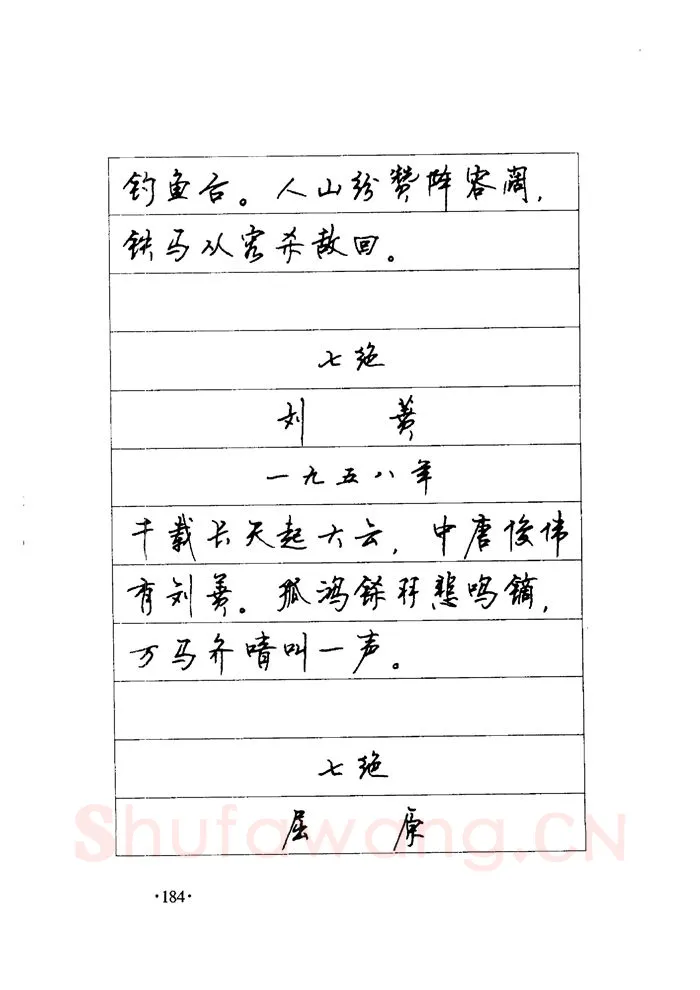 钓鱼台。人山纷赞阵容阔,
铁马从容杀敌回。
七绝
刘 蕡
一九五八年
千载长天起大云,中唐俊伟
有刘蕡。孤鸿铩羽悲鸣镝,
万马齐喑叫一声。
七绝
屈 原
Shufawang.CN
·184·